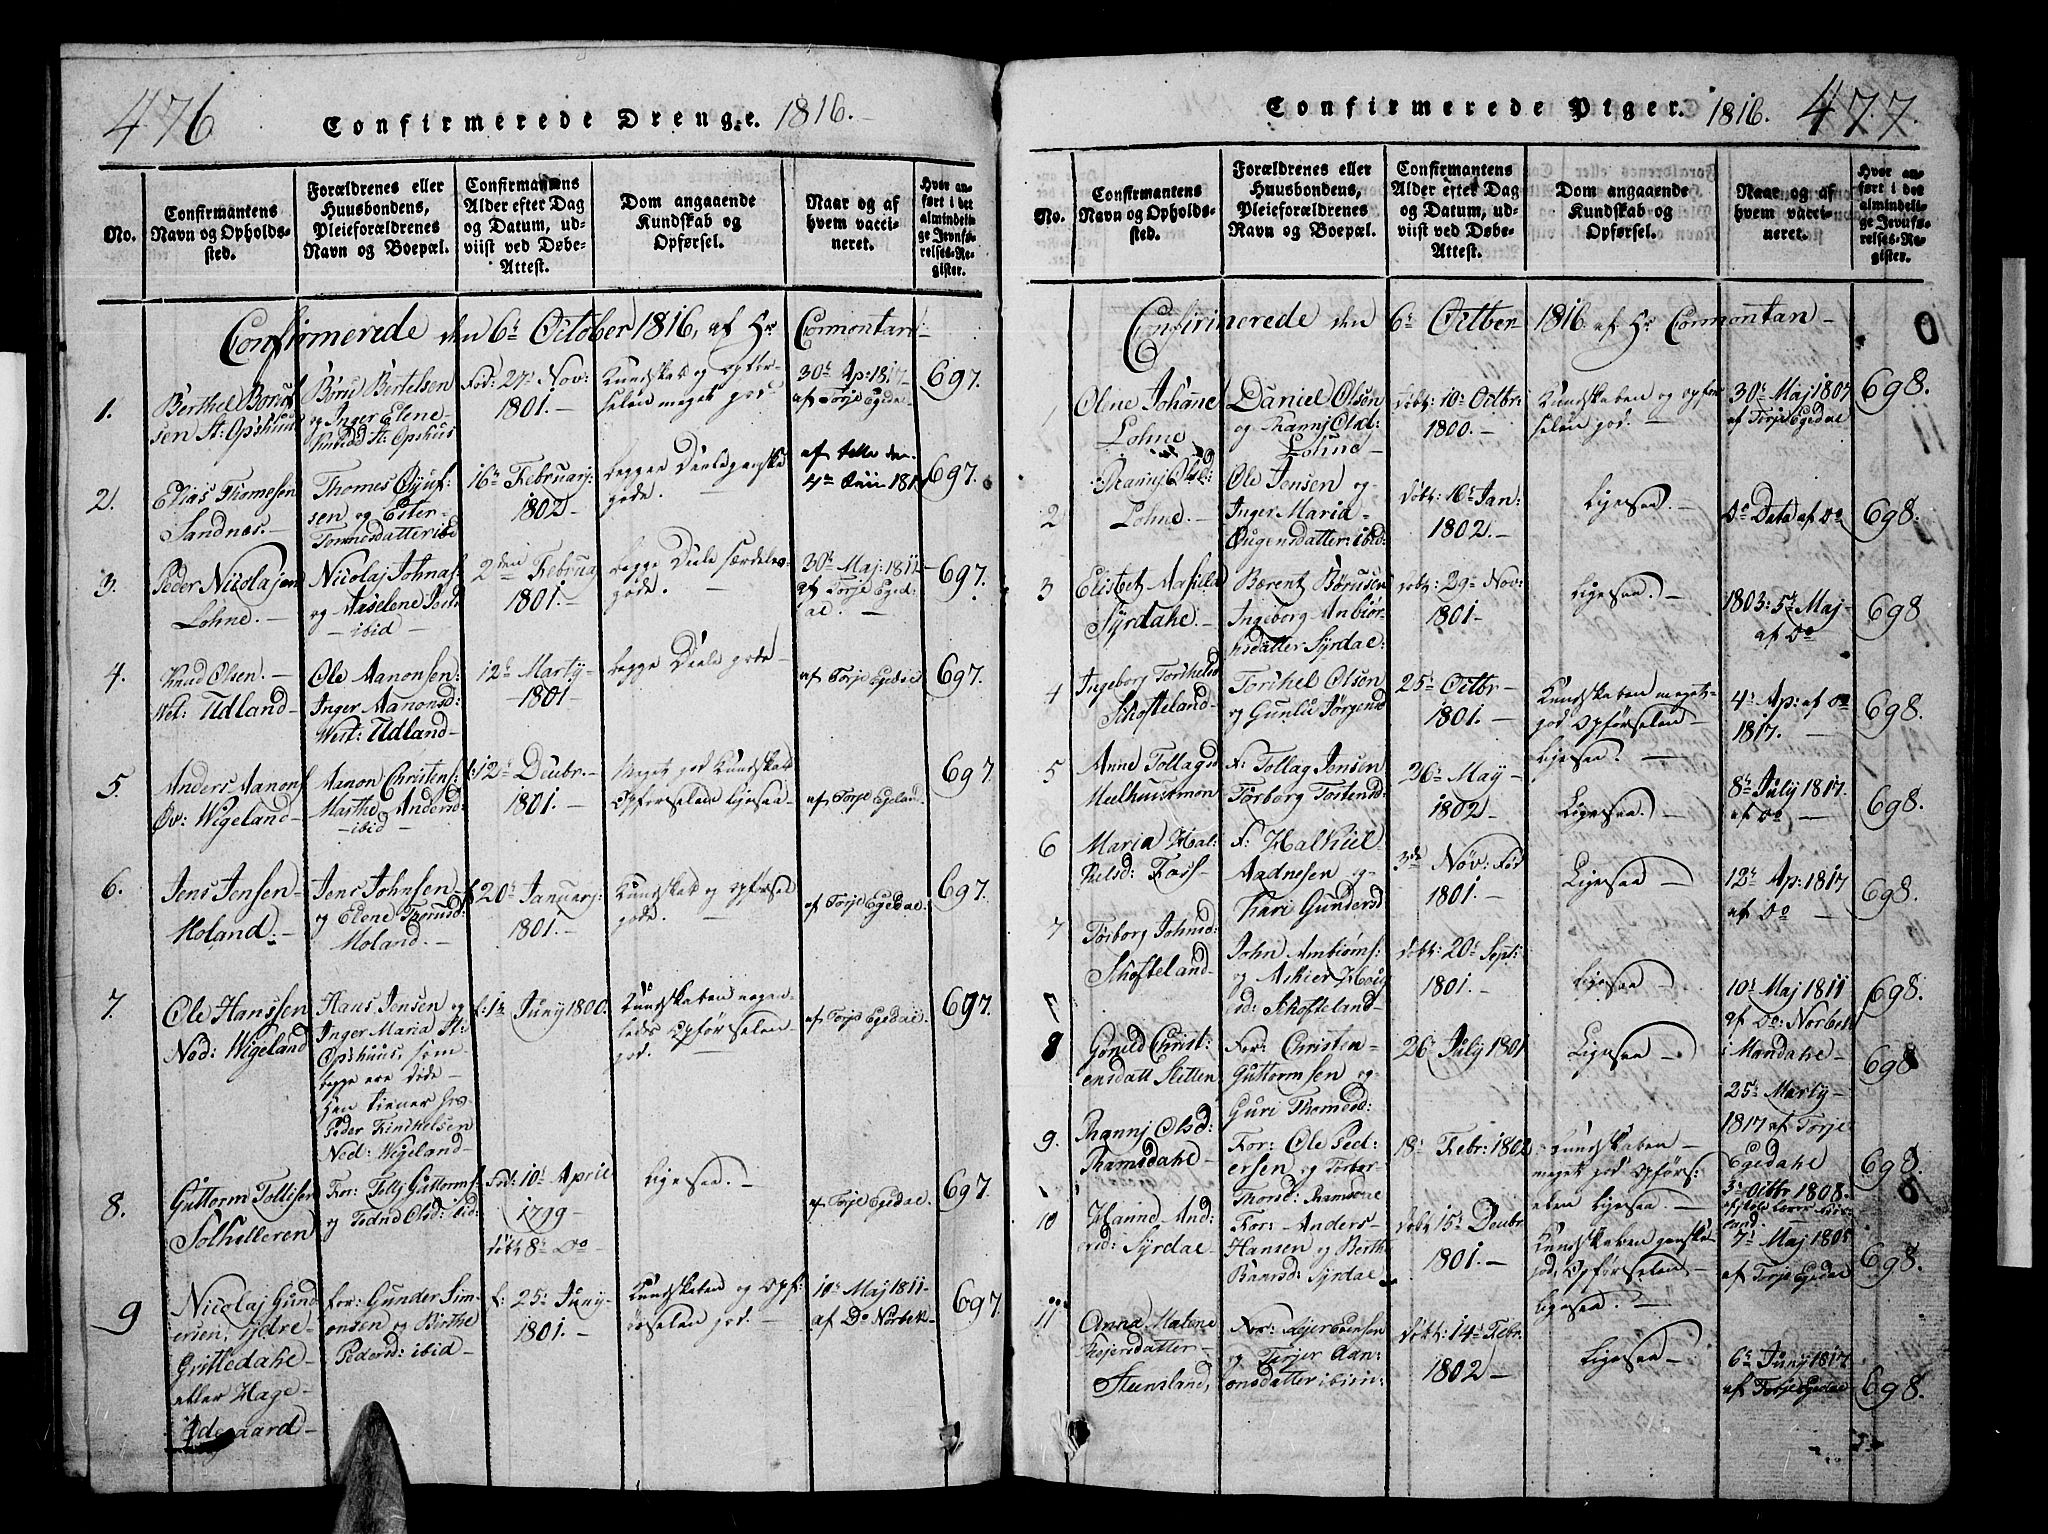 476
Confirmerede Drenge. 1816.
No.
Confirmantens
Navn og Opholds-
sted.
Forældrenes eller
Huusbondens,
Pleieforældrenes
Navn og Boepæl.
Confirmantens
Alder efter Dag
og Datum, ud-
viist ved Døbe-
Attest.
Dom angaaende
Kundskab og
Opførsel.
Naar og af
hvem vacci-
neret.
Hvor an-
ført i det
almindeli-
ge Jevnfø-
relses-Re-
gister.
Confirmerede den 6te October 1816, af Hr Cormontan
1.
Berthel Børuf
sen St: Opshuus
Børu Bertelsen
og Inger Elene
Knusd St: Opshus
Fød: 27de Nov:
1801.
Kundskab og Opfør-
selen meget god
30te Ap: 1817
af Torje Egedae
697.
2.
Elias Thomesen
Sandnæs.
Thomes Gjuf-
sen og Ester
Tomesdatter ibd
16de Februarj:
1802
begge Deele ganske
gode.
697.
3.
Peder Nicolajsen
Lohne.
Nicolaj Johnas
og Aaselene
ibid
2den Februa
1801.
begge Deele særdeles
gode.
30te Maj: 1811
af Torje Eged:
dae.
697.
4.
Knud Olsen.
West: Udland
Ole Aanonsen
Inger Aanonsd:
West: Udland
12te Martÿ
1801
begge Deele gode
af Torje Egedae
697.
5.
Anders Aanons
Øv: Wigeland
Aanon Christens:
Marthe Andersd:
ibid
f: 12te Decbr.
1801.
Meget god Kundskab
Opførselen ligesaa
af Torje Egeland.
697.
6.
Jens Jensen
Moland.
Jens Johnsen
og Elene Tterusd:
Moland.
f: 20de Januarj:
1801.
Kundskab og Opførsel
gode.
af Torje Egedae.
697.
7.
Ole Hanssen
Ned: Wigeland
Hans Jensen og
Inger Maria St:
Opshuus, som
begge ere døde
Han tiener hos
Peder Finkelsen
Ned: Wigeland
f: 1te Juny 1800.
Kundskaben nogen-
leds Opførselen
god.
af Torje Egedae.
697.
8.
Guttorm Tollisen
Solhelleren
For: Tollj Guttorms:
og Tedne Olsd: ibid:
Fød: 10de April
1799
døbt 8de Do
ligesaa.
af Torje Egedae.
697.
9
Nicolaj Gund
ersen, Ydre
Grittedahl
eller Hage
Ødegaard
for: Gunder Sim-
onsen og Birthe
Pedersd: ibid
f: 25de Juny
1801.
Kundskaben og Opf:
ørselen god.
10de Maj 1811
af Do Norbek
697.
Confirmerede Piger. 1816. 477.
No.
Confirmantens
Navn og Opholds-
sted.
Forældrenes eller
Huusbondens,
Pleieforældrenes
Navn og Boepæl.
Confirmantens
Alder efter Dag
og Datum, ud-
viist ved Døbe-
Attest.
Dom angaaende
Kundskab og
Opførsel.
Naar og af
hvem vacci-
neret.
Hvor an-
ført i det
almindeli-
ge Jevnfø-
relses-Re-
gister.
Confirmerede den 6te Octber 1816 af Hr Cormontan
1
Olne Johanne
Lohne
Daniel Olsen
og Rannj Olsd:
Lohne
døbt: 10de Octbr:
1800.
Kundskaben og Opfør
selen god.
30te Maj 1807
af Torje Egedae
698.
2
Rannj Olsd:
Lohne.
Ole Jensen og
Inger Maria
Eugensdatter: ibid:
døbt: 16de Jan:
1802.
Ligesaa.
Do Dato af Do
698.
3
Elisbet Aasille
Syrdahe.
Bærent Børusen
Ingeborg Anbiør
nsdatter Syrdae:
døbt: 29de Nov:
1801.
Ligesaa.
1803: 5te Maj
af Do
698
4
Ingeborg Torkelsd
Skofteland
Torkel Olsen
og Gunlu Jørgensd
25de Octbr
1801.
Kundskaben meget
god Opførselen
ligesaa.
4de Ap: af Do
1817.
698.
5
Anne Tollagsd
Meelhuusmoen
F: Tollag Jensen
Torborg Tortensd:
26de May
1802
Ligesaa.
8de July 1817
af Do
698.
6
Maria Hal-
kielsd: Foss
F: Halkiel
Aadnesen og
Kari Gundersd
3de Nov: Fød
1801.
Ligesaa
12te Ap: 1817
af Do
698.
7
Torborg Johnsd:
Skofteland
John Ambiørns:
og Askier Høig
sd: Skofteland
døbt: 20de Sept:
1801.
Ligesaa
10de Maj 1811
af Do: Norbek
i Mandahl
698.
8
Gonild Christ:
ensdatt Sletten
For: Christen
Guttormsen og
Guri Thomesd:
26de July 1801
Ligesaa
25de Marty
1817 af Torje
Egedahe
698
9.
Rannj Olsd:
Ramsdahe
For: Ole Ped-
ersen og Torbor
Thorsd: Ramsdae
18de Febr: 1802
Kundskaben
meget god Opførs:
elen ligesaa
3de Octbr 1808.
698.
10
Hanne And:
ersd: Syrdae
For: Anders
Hansen og Berthe
Baarsd: Syrdae
døbt 15de Decbr
1801.
Kundskaben ganske
god, Opførselen
ligesaa.
7de Maj 1805
af Torje Egedae
698.
11
Anna Malene
Reiersdatter
Steensland,
For: Reier Evensen
og Torjer Aan:
onsdatter ibien:
døbt: 14de Febr.
1802
Ligesaa
6te Juny 1817
af Torje Egedae
698.